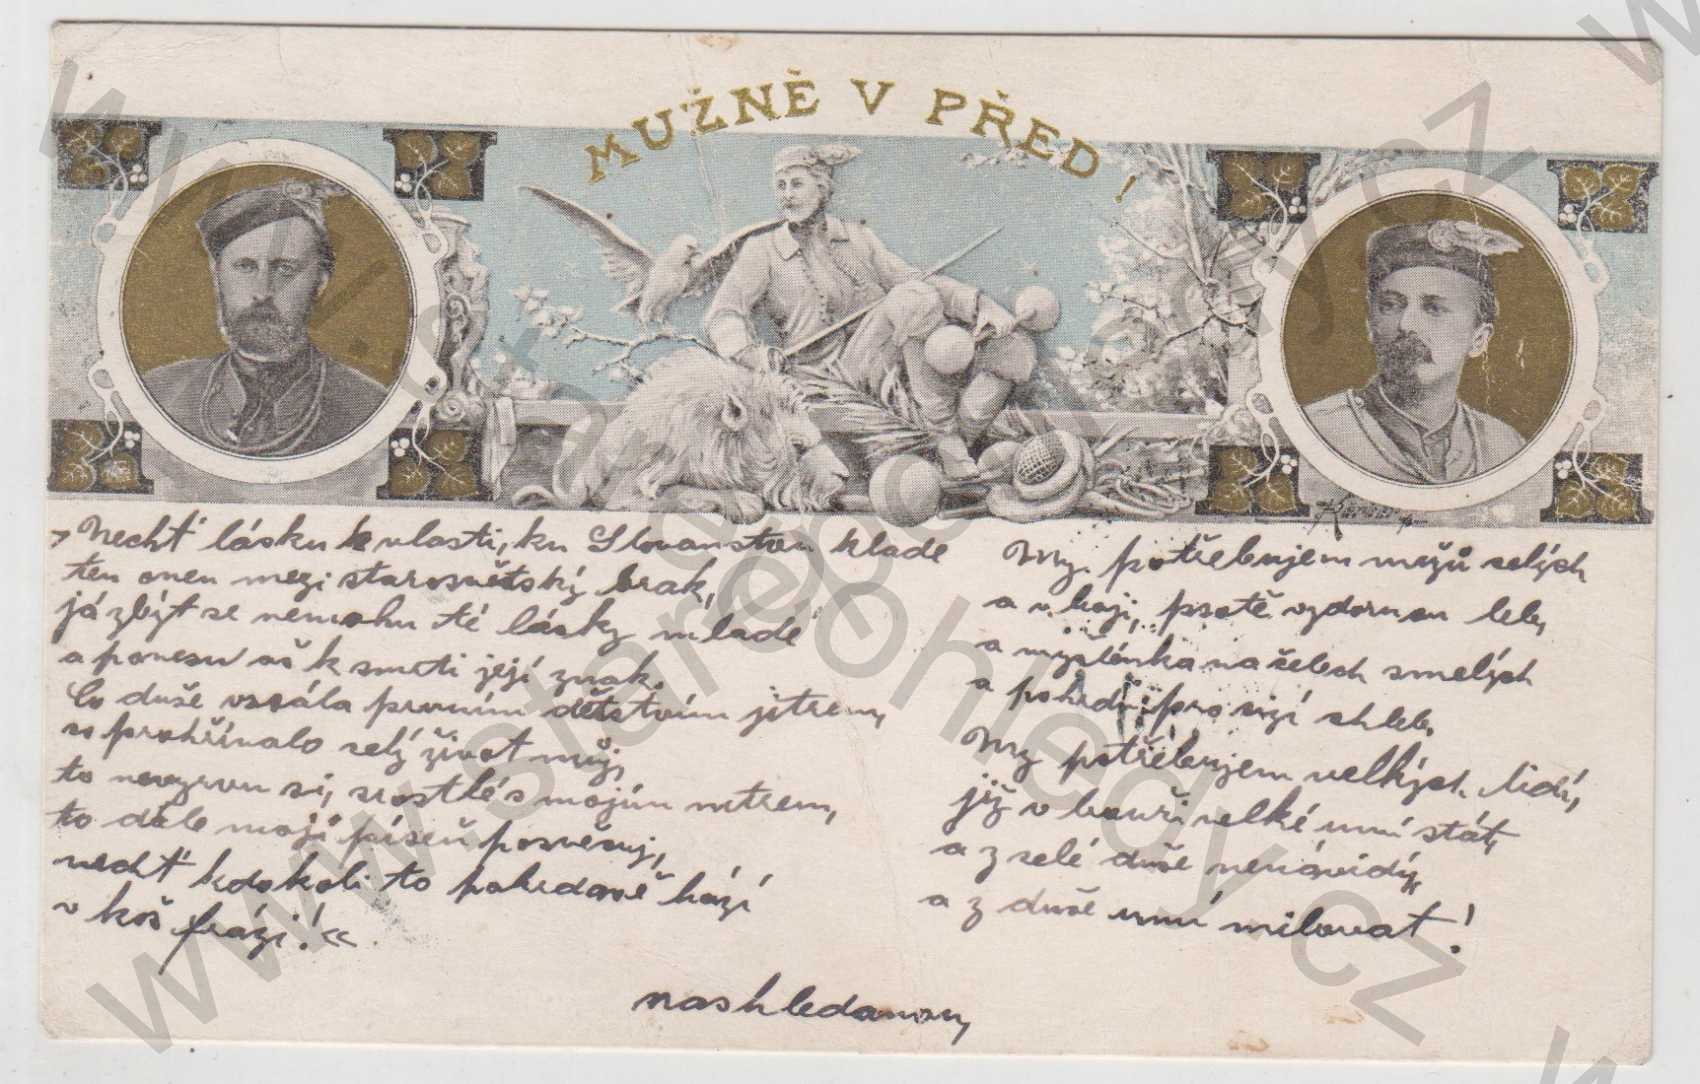 MUŽNĚ V PŘED!
»Nechť lásku k vlasti, ku Slovanstvu klade
ten onen mezi starosvětský brak,
já zbýt se nemohu té lásky mladé
a ponesu až k smrti její znak.
Co duše vssála prvním dětstvím jitrem,
co prohřívalo celý život můj,
to nevyrvu si, srostlé s mojím nitrem,
to dále mojí píseň posvěcuj,
nechť kdokoli to pohrdavě hází
v koš frází!«
My potřebujem mužů celých
a v boji, psotě vzdornou leb,
a myšlénka na čelech smělých
a pohrdání pro cizí chleb.
My potřebujem velkých lidí,
již v bouři velké umí stát,
a z celé duše nenávidí,
a z duše umí milovat!
nashledanou,
www.starepohledy.cz